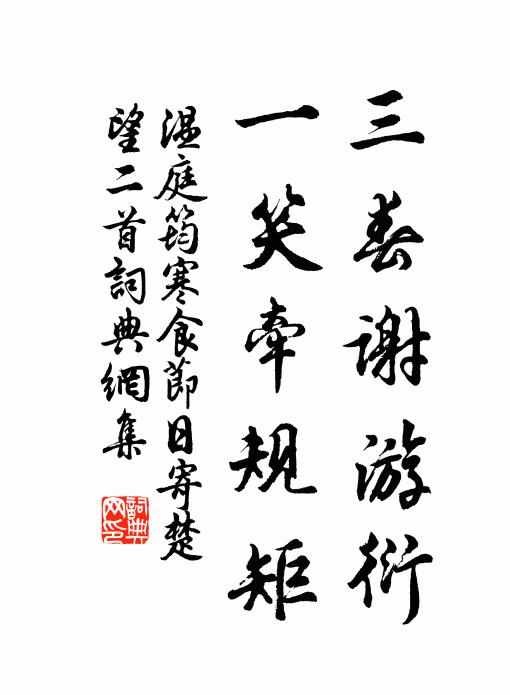 三春谢游衍
一笑牵规矩
温庭筠寒食節日寄楚
望二首詞典網集
詞典网印